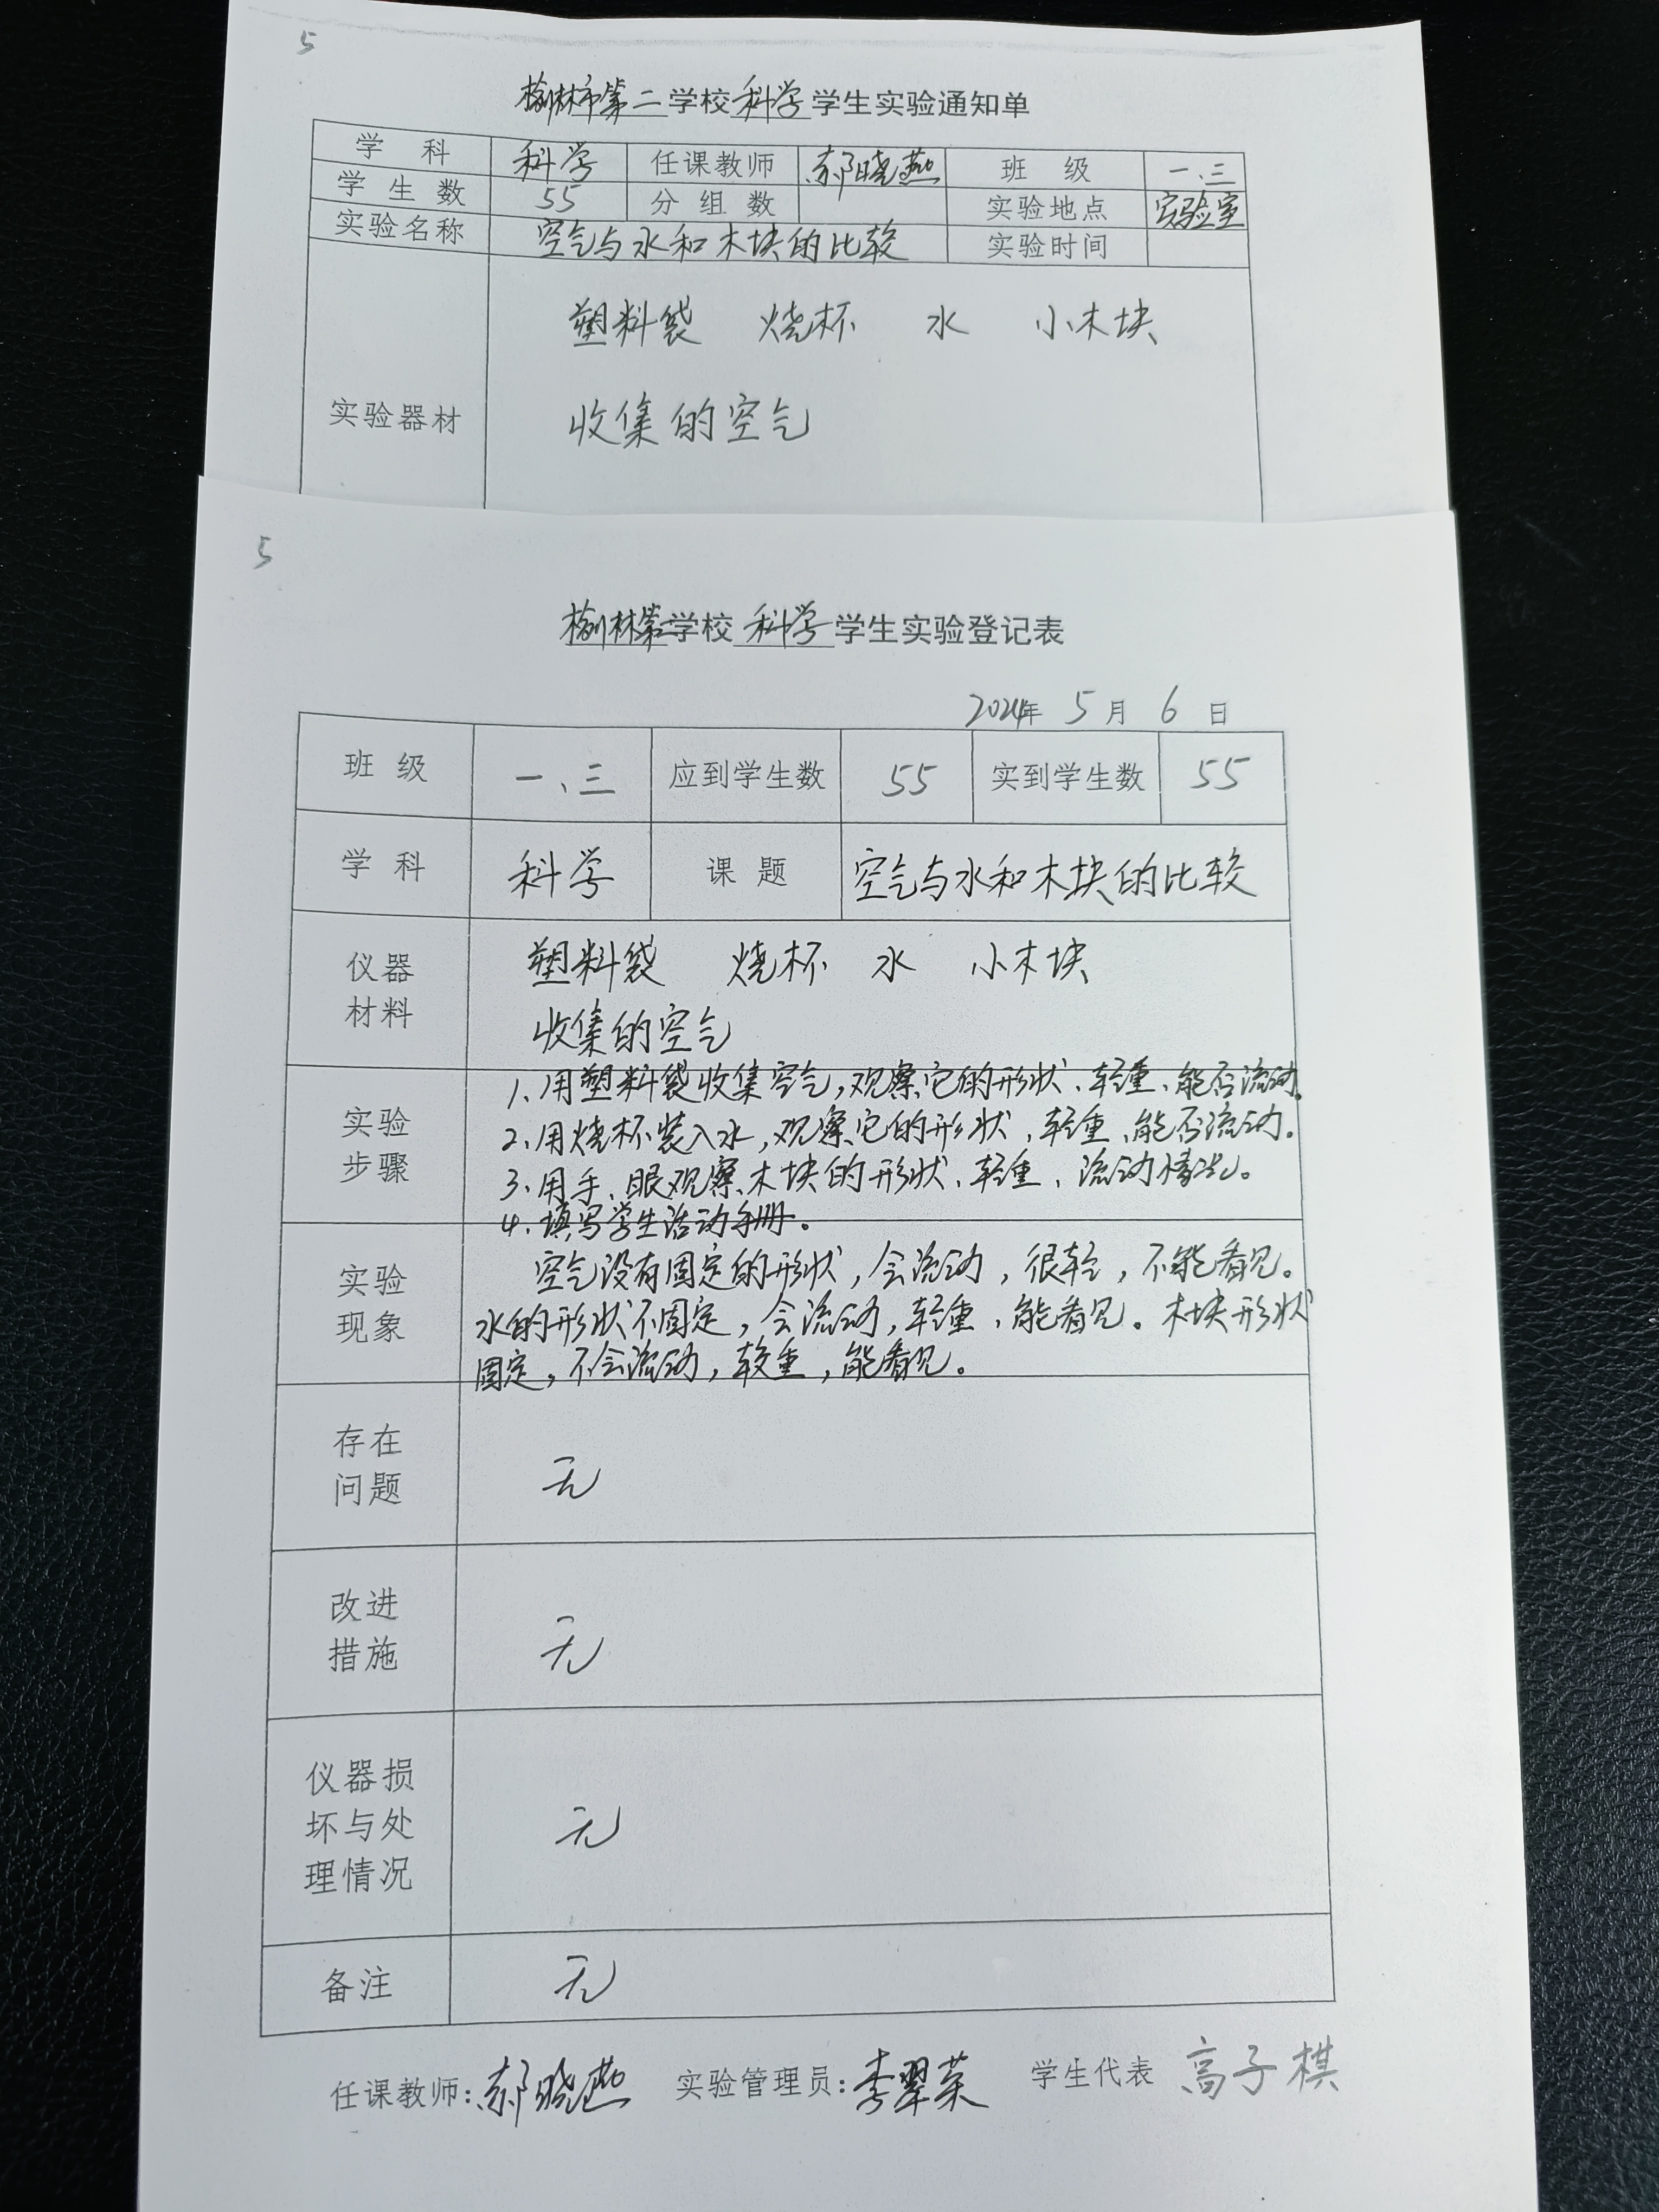 5
榆林市第二学校科学学生实验通知单
学 科 科学 任课教师 郝晓燕 班 级 一.三
学 生 数 55 分 组 数 实验地点 实验室
实验名称 空气与水和木块的比较 实验时间
塑料袋 烧杯 水 小木块
实验器材 收集的空气
5
榆林第二学校科学学生实验登记表
2024年 5 月 6 日
班 级 一、三 应到学生数 55 实到学生数 55
学 科 科学 课 题 空气与水和木块的比较
仪器 塑料袋 烧杯 水 小木块
材料 收集的空气
1、用塑料袋收集空气,观察它的形状、轻重、能否流动.
实验 2、用烧杯装入水,观察它的形状,轻重、能否流动.
步骤 3、用手、眼观察木块的形状、轻重、流动情况。
4、填写学生活动手册。
实验 空气没有固定的形状,会流动,很轻,不能看见。
现象 水的形状不固定,会流动,轻重,能看见。木块形状
固定,不会流动,较重,能看见。
存在
问题 无
改进
措施 无
仪器损
坏与处 无
理情况
备注 无
任课教师:郝晓燕 实验管理员:李翠荣 学生代表 高子棋